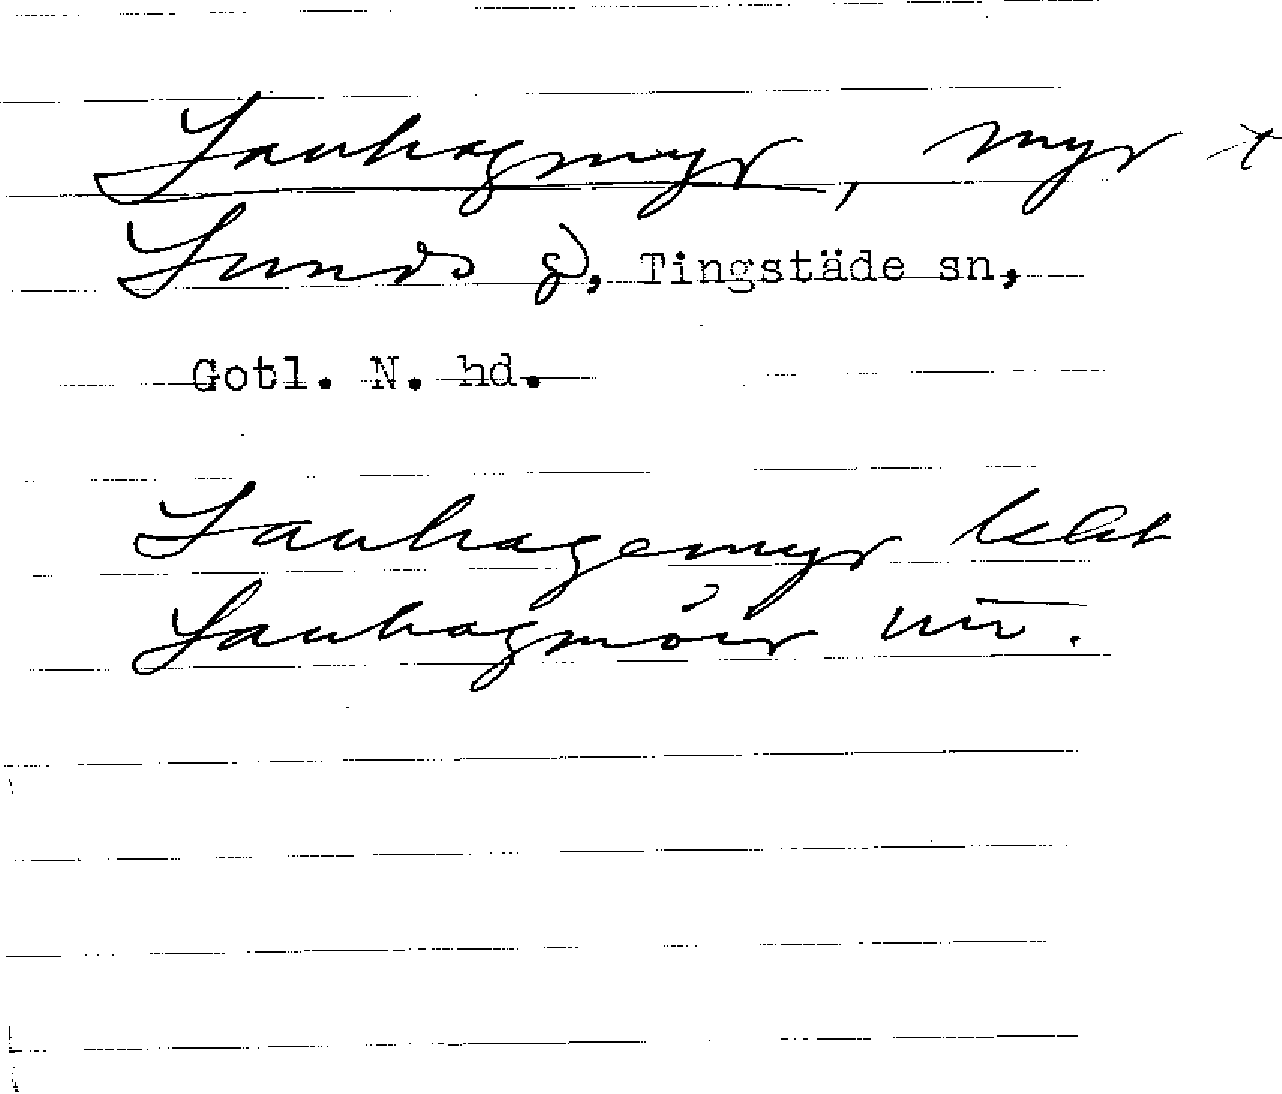 Lauhagmyr, myr t
Lunds g), Tingstäde sn,
Gotl. N. hd.
Lauhagemyr lckt
Lauhagmöir